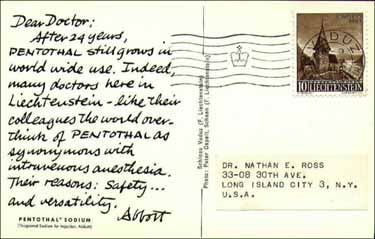 Dear Doctor:
After 24 years,
PENTOTHAL still grows in
world wide use. Indeed,
many doctors here in
Liechtenstein - like their
colleagues the world over-
think of PENTOTHAL as
synonymous with
intravenous anesthesia.
Their reasons: Safety...
and versatility.
Abbott
PENTOTHAL® SODIUM
(Thiopental Sodium for Injection, Abbott)
Schloss Vaduz (F. Liechtenstein)
Photo: Peter Ospelt, Schaan (F. Liechtenstein)
VADUZ
10 LIECHTENSTEIN
DR. NATHAN E. ROSS
33-08 30TH AVE.
LONG ISLAND CITY 3, N.Y.
U.S.A.